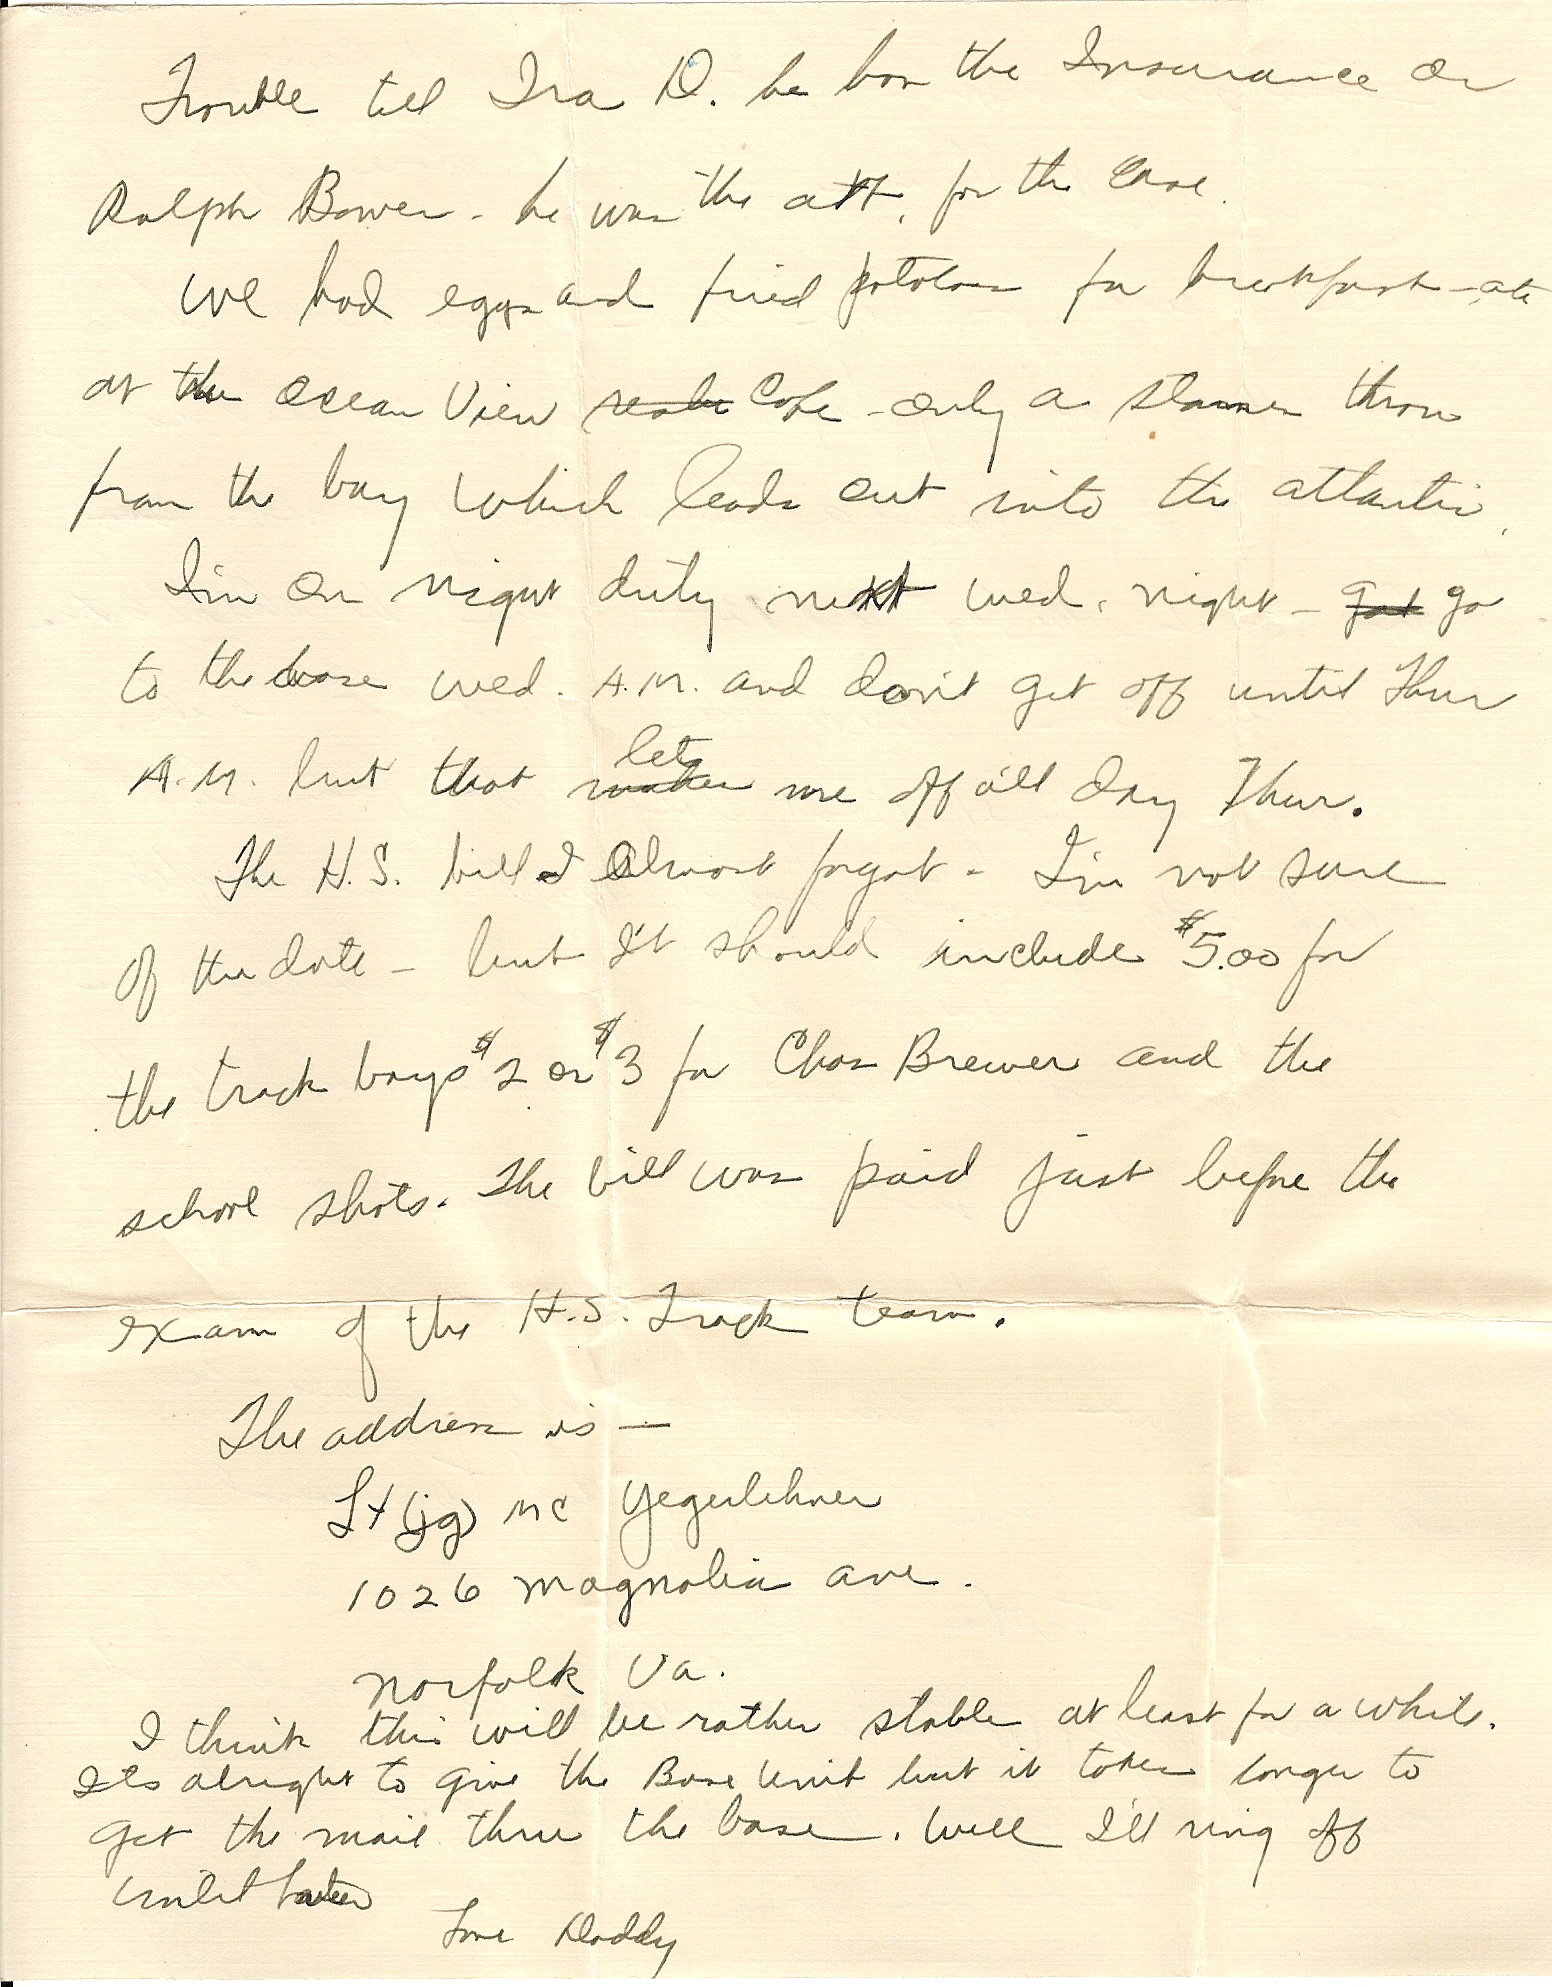 Trouble tell Ira D. he has the Insurance or
Ralph Bower - he was the att. for the case.
We had eggs and fried potatoes for breakfast - ate
at the Ocean View Cafe - only a stones throw
from the bay which leads out into the atlantic.
I'm on night duty next wed. night - go
to the base wed. A.M. and don't get off until Thur
A.M. but that lets me off all day Thur.
The H.S. bill I almost forgot - I'm not sure
of the date - but It should include $5.00 for
the track boys $2 or $3 for Chas Brewer and the
school shots. The bill was paid just before the
exam of the H.S. Track team.
The address is —
Lt (jg) MC Yegerlehner
1026 Magnolia ave.
Norfolk Va.
I think this will be rather stable at least for a while.
Its alright to give the Base Unit but it takes longer to
get the mail thru the base. Well I'll ring off
until later
Love Daddy